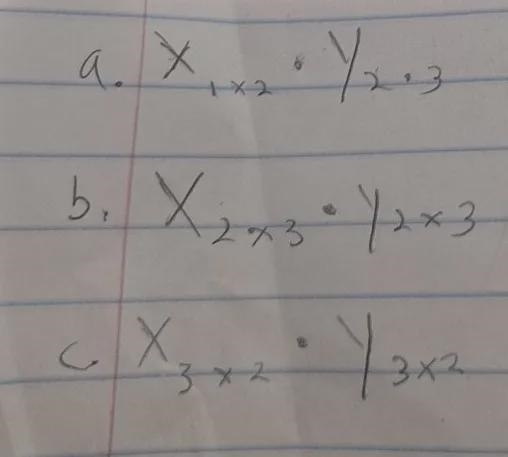 a. X₁ₓ₂ · Y₂.₃
b. X₂ₓ₃ · Y₂ₓ₃
c. X₃ₓ₂ · Y₃ₓ₂